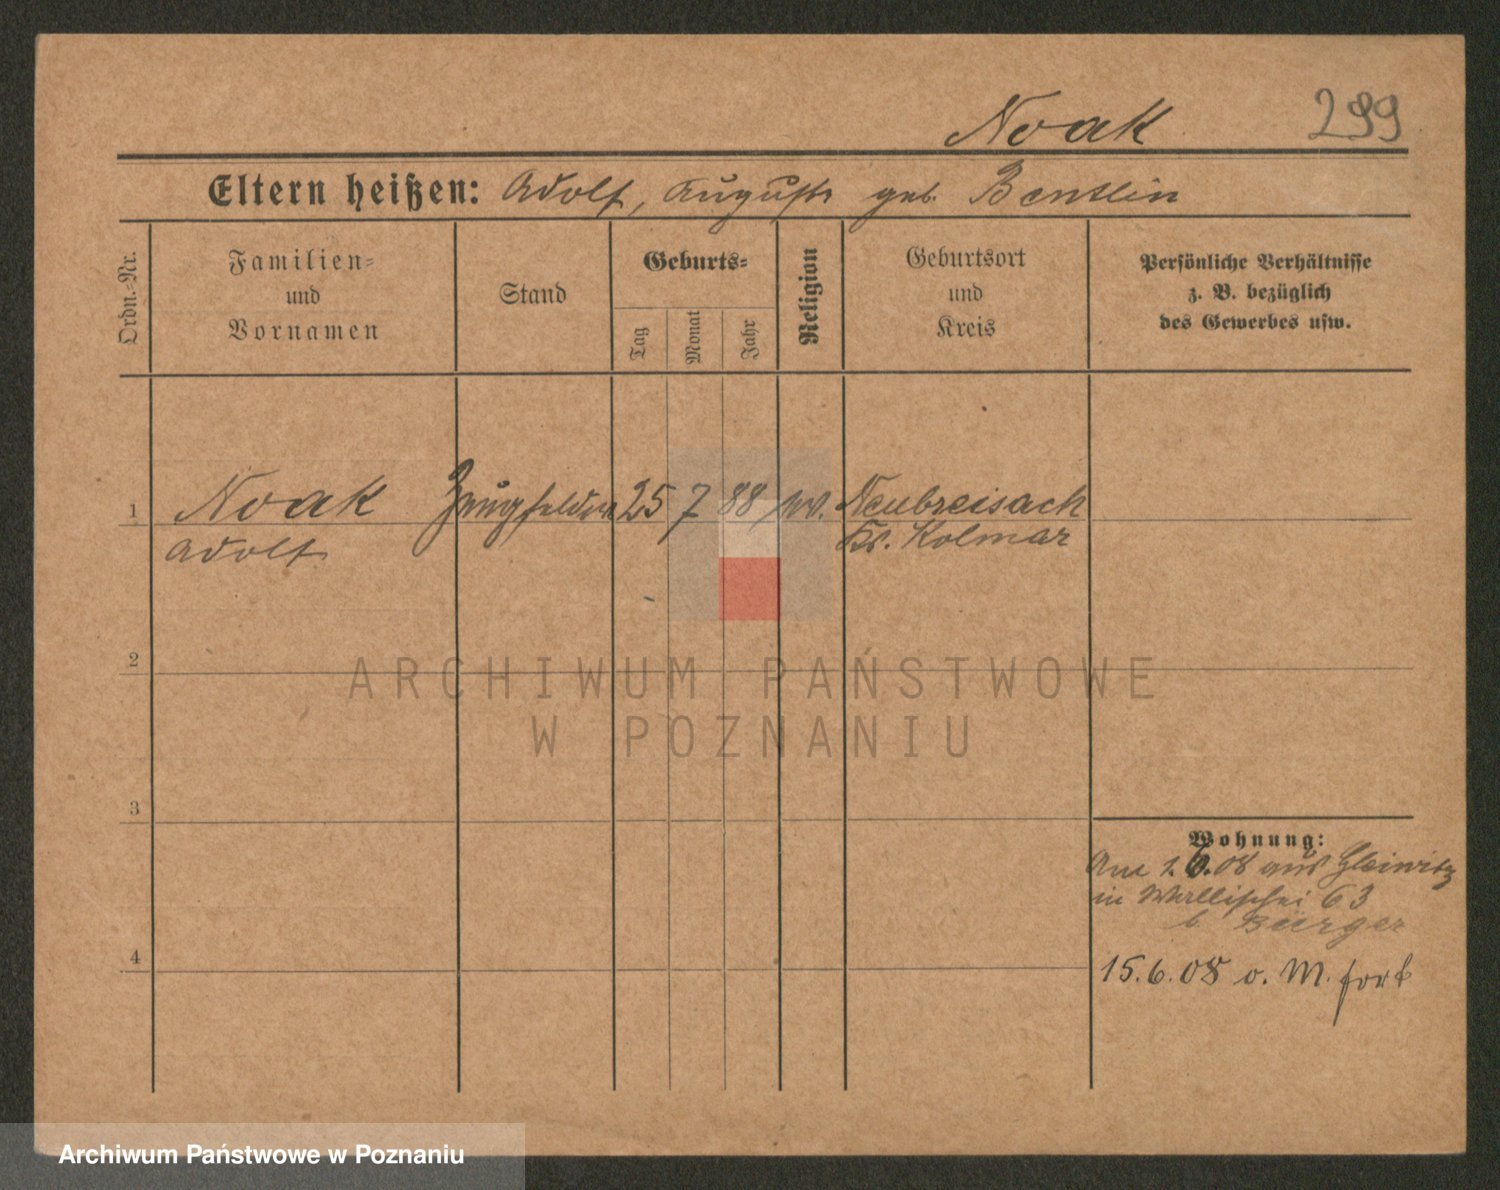 Noak 299
Eltern heißen: Adolf, Auguste geb. Bentlin
Ordn.-Nr.
Familien-
und
Vornamen
Stand
Geburts-
Tag
Monat
Jahr
Religion
Geburtsort
und
Kreis
Persönliche Verhältnisse
z. B. bezüglich
des Gewerbes usw.
1 Noak 25 7 88 Neubreisach
Adolf Kr. Kolmar
2
3
4
Wohnung:
Am 1.6.08 aus Gleiwitz
in Wallischei 63
b. Bürger
15.6.08 o. M. fort
ARCHIWUM PAŃSTWOWE
W POZNANIU
Archiwum Państwowe w Poznaniu